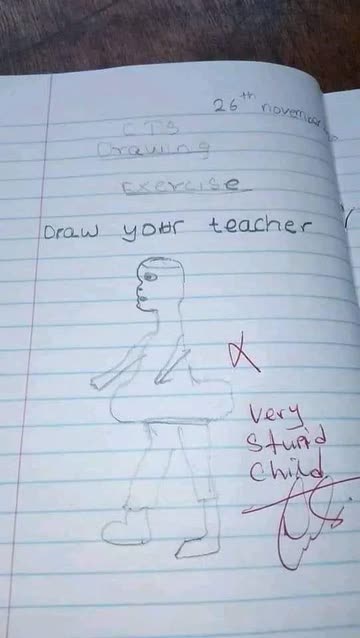 26th november
CTS
Drawing
Exercise
Draw your teacher
Very
Stupid
Child